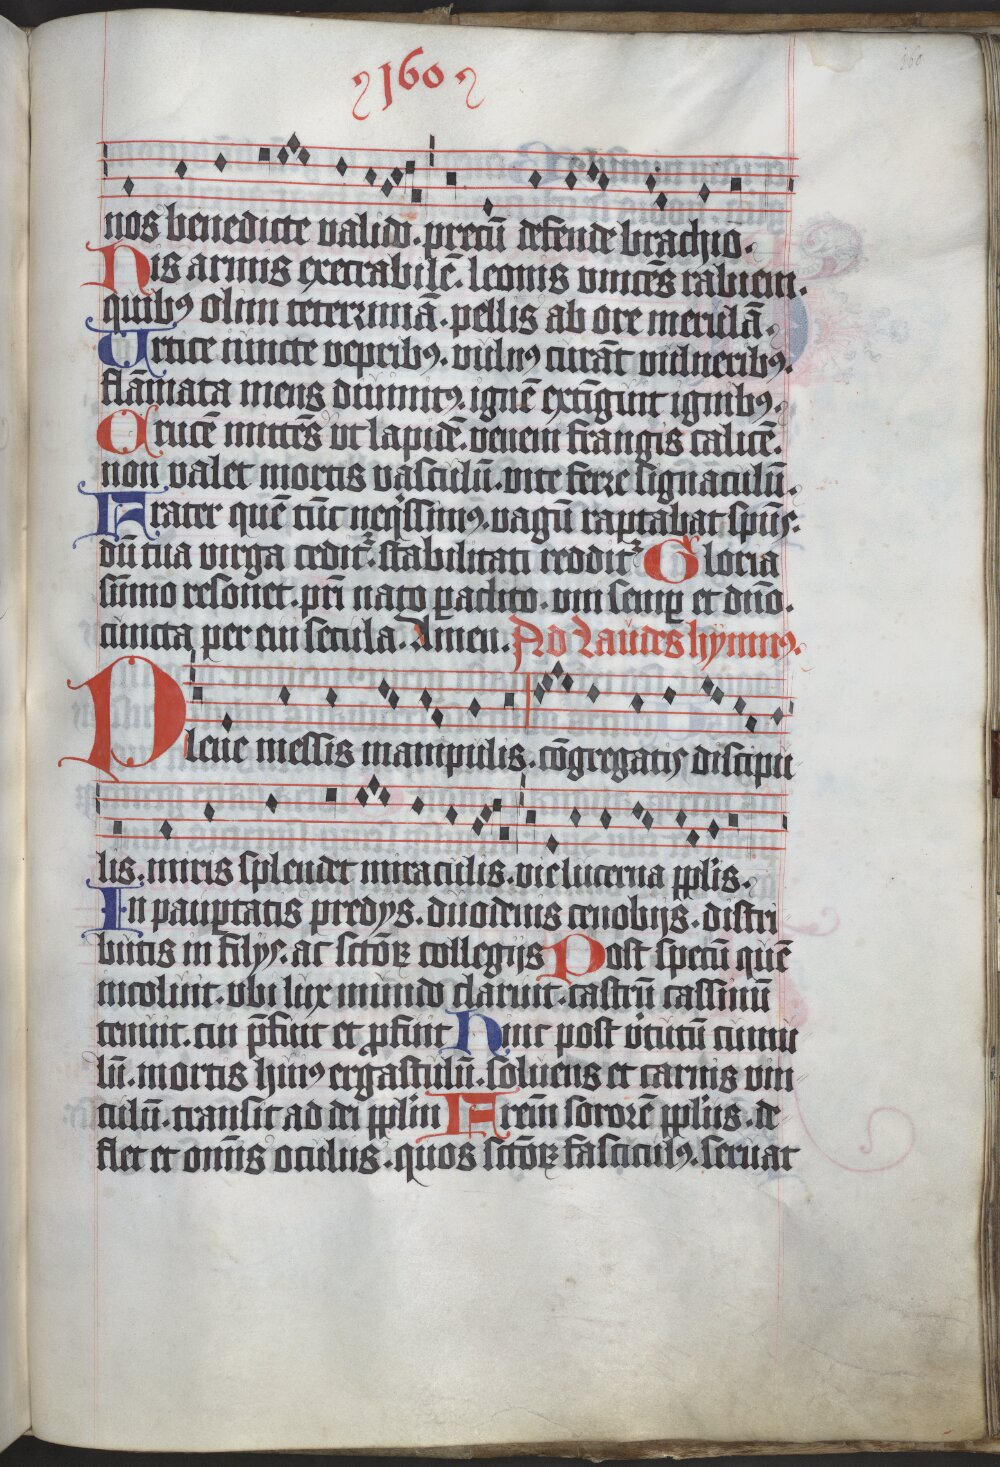 160
160
nos benedicte valido. precū defende brachio.
His armis execrabilē. leonis vincēs rabiem.
quibꝰ olim teterrimā. pellis ab ore merulā.
Urtice iuncte vepribꝰ. vulnꝰ curāt vulneribꝰ.
flāmata mens diuinitꝰ. ignē extīguit ignibꝰ.
Crucē mittēs vt lapidē. veneni frangis calicē.
non valet mortis vasculū. vite ferre signaculū.
Frater quē tūc neqissimꝰ. vagū raptabat spūs.
dū tua virga cedit᷑. stabilitati reddit᷑ Gloria
sūmo resonet. pri nato ꝑaclito. vni semꝑ et dn̄o.
cuncta per eui secula. Amen. Ad Laudes hymnꝰ.
Pleuc messis manipulis. cōgregatis discipu
lis. miris splendet miraculis. vie lucerna ꝑplis.
In pauꝑtatis predijs. duodenis cenobijs. distri
butis in filijs. ac sctōꝝ collegijs Post specū quē
incoluit. vbi lux mundo claruit. castrū cassinū
tenuit. cui p̄fuit et ꝓfuit Hinc post v̓tutū cumu
lū. mortis huiꝰ ergastulū. soluens et carnis vin
culū. transit ad dei pplm̄ Frem̄ sororē pplus. de
flet et omīs oculus. quos sctōꝝ fasciculꝰ. seruat